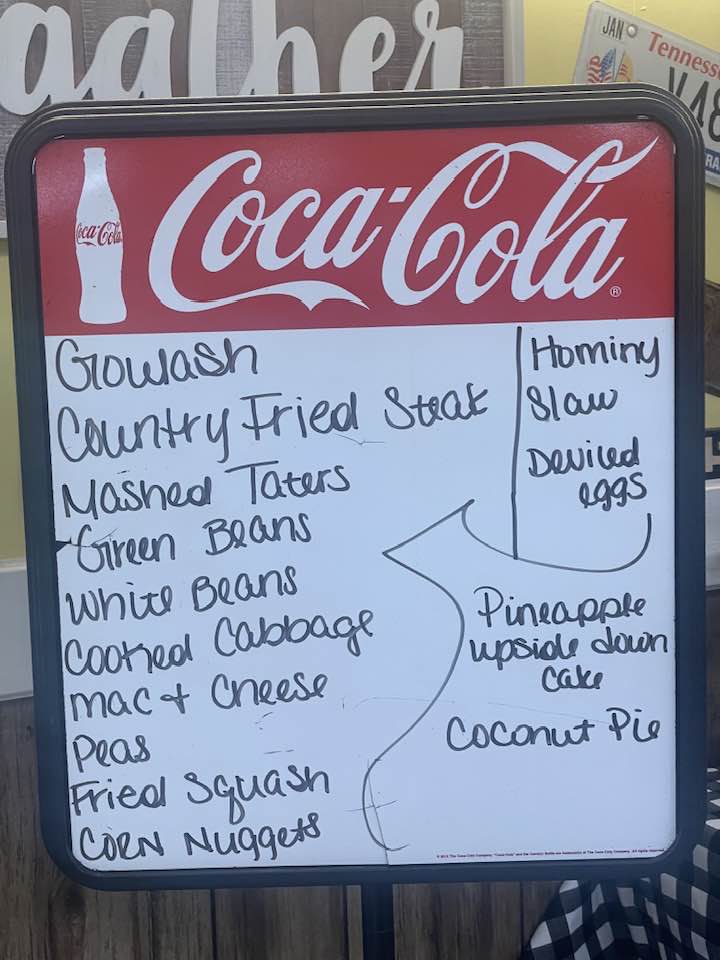 gather
JAN Tenness
Coca-Cola
Coca-Cola ®
Gowash
Country Fried Steak
Mashed Taters
Green Beans
White Beans
Cooked Cabbage
Mac + Cheese
Peas
Fried Squash
CORN Nuggets
Hominy
Slaw
Deviled
eggs
Pineapple
upside down
Cake
Coconut Pie